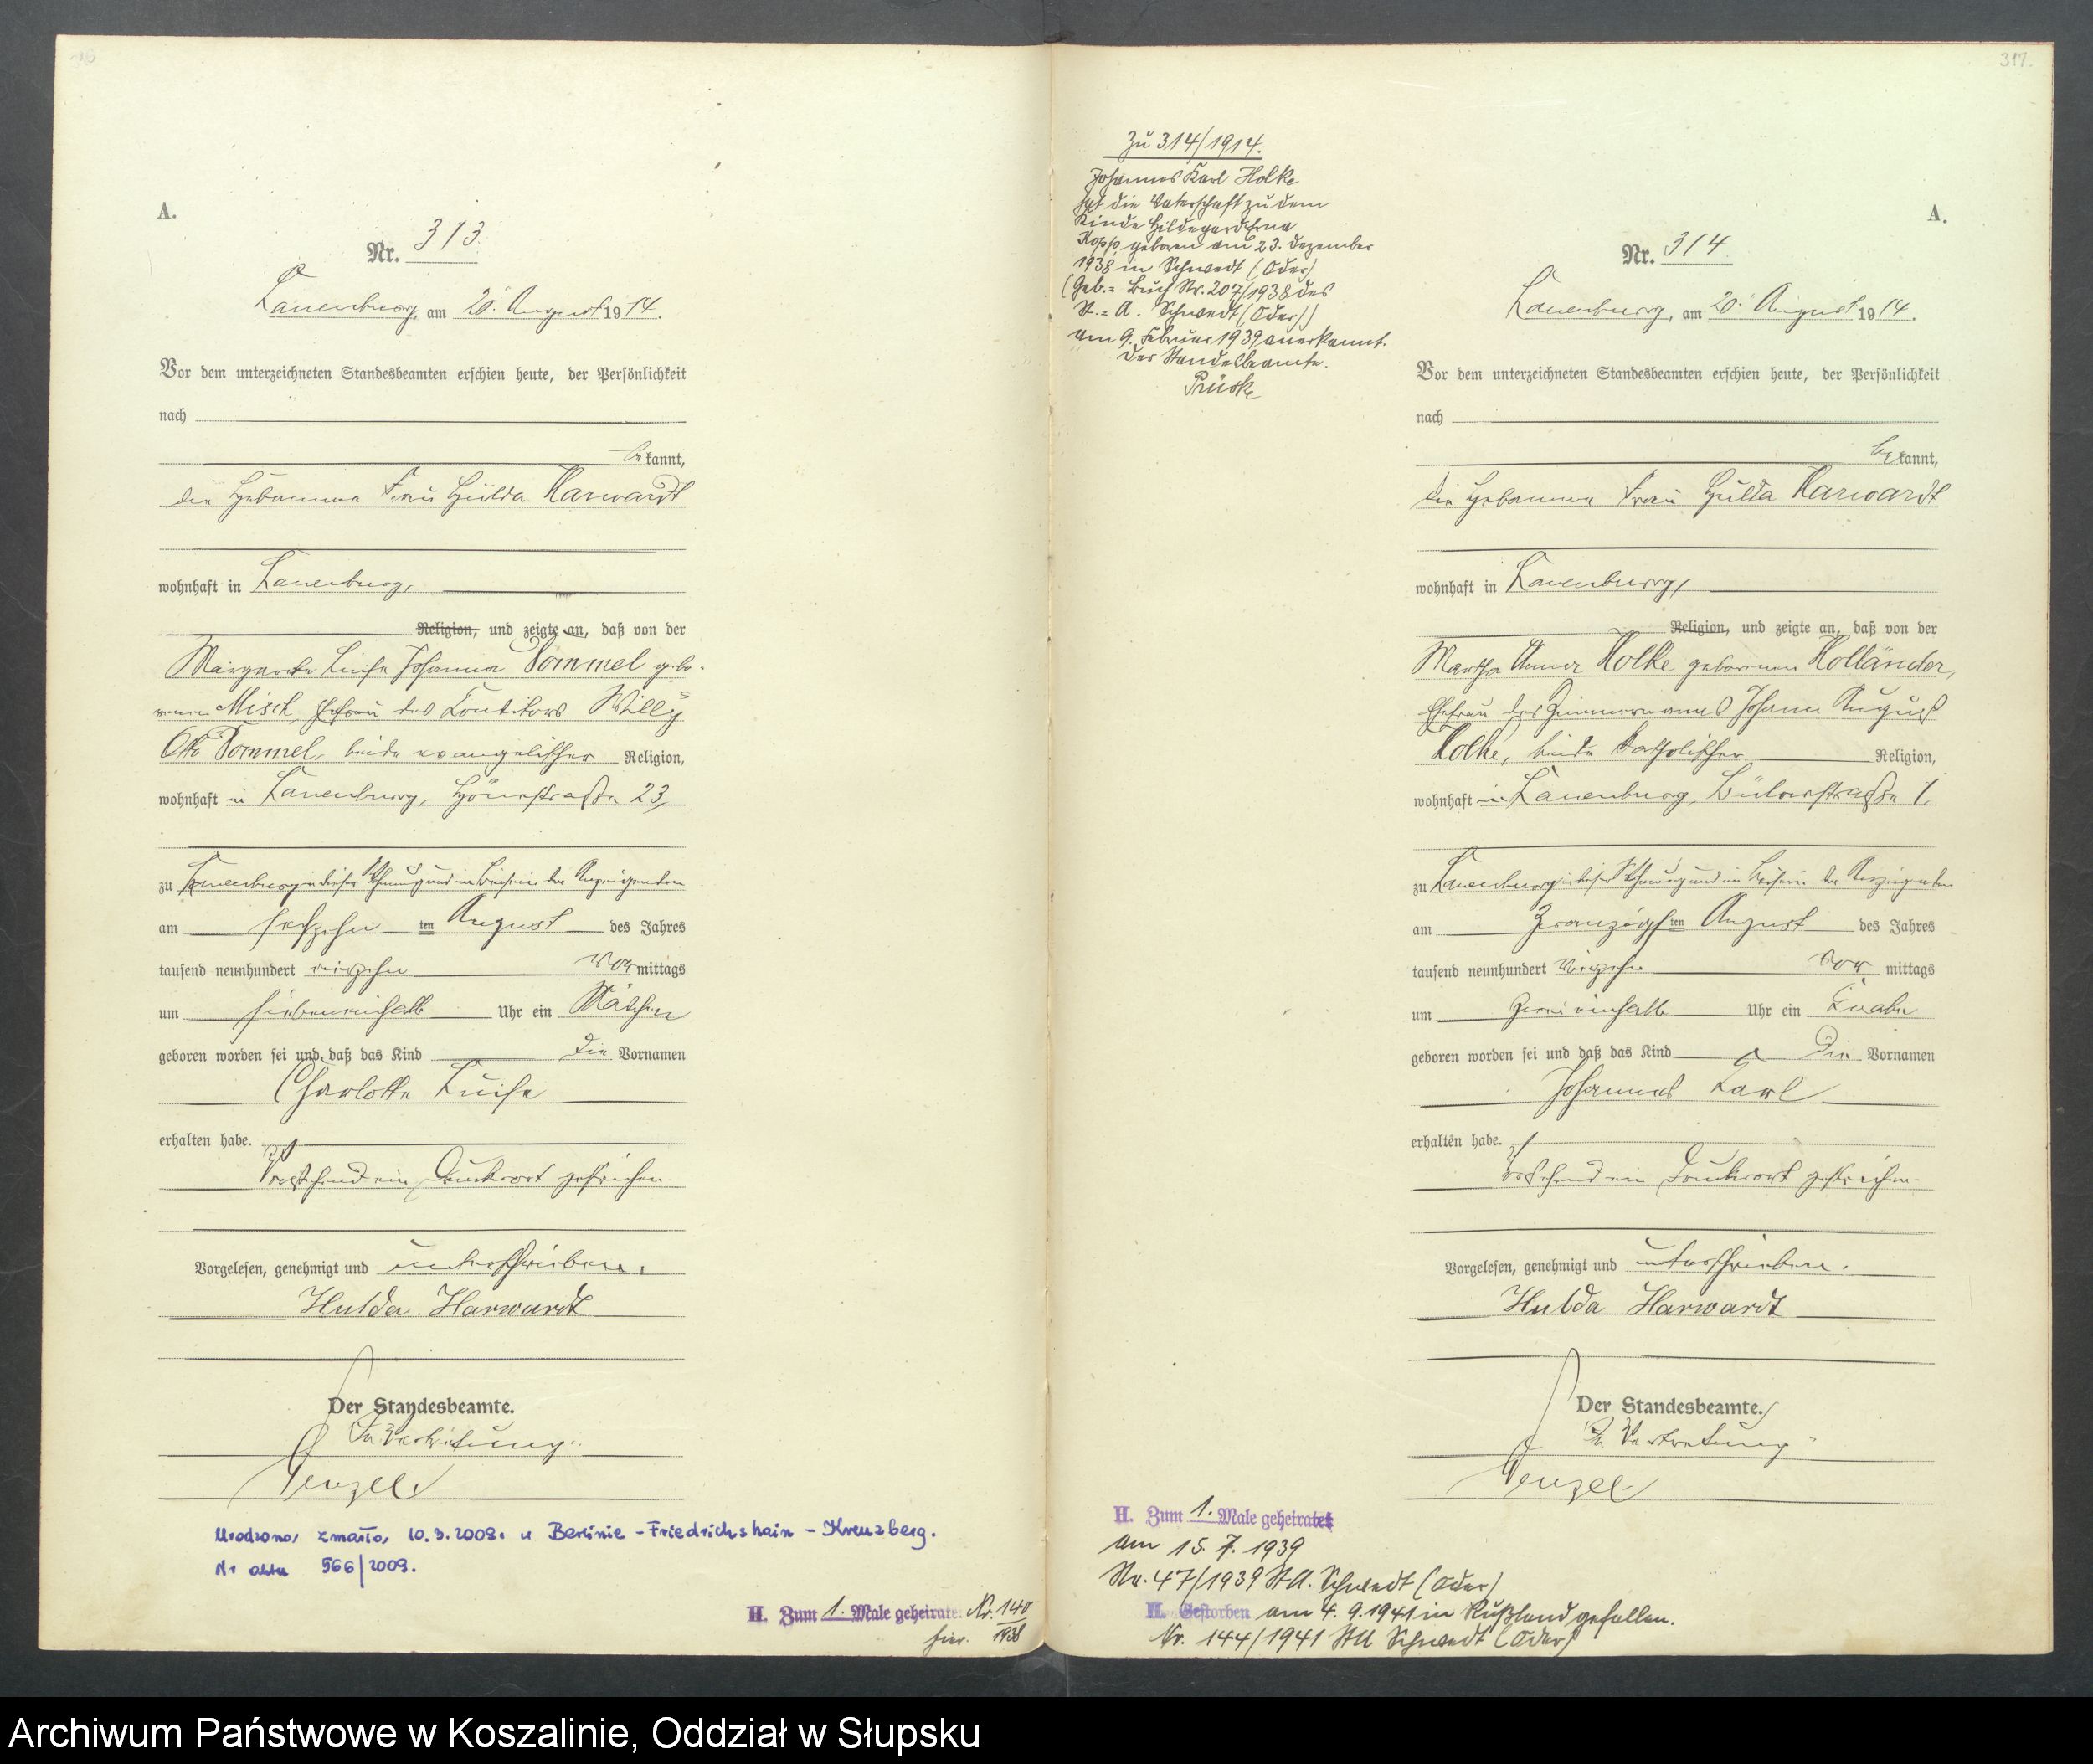 A.
Nr. 313.
Lauenburg, am 20. August 1914.
Vor dem unterzeichneten Standesbeamten erschien heute, der Persönlichkeit
nach
bekannt,
die Hebamme Frau Hulda Harwardt
wohnhaft in Lauenburg,
Religion, und zeigte an, daß von der
Margarete Luise Johanna Pommel gebo-
renen Misch, Ehefrau des Konditors Willy
Otto Pommel, beide evangelischer Religion,
wohnhaft in Lauenburg, Höhnstraße 23,
zu Lauenburg in dieser Wohnung und im Beisein der Anzeigenden
am sechzehnten August des Jahres
tausend neunhundert vierzehn Vormittags
um siebeneinhalb Uhr ein Mädchen
geboren worden sei und daß das Kind die Vornamen
Charlotte Luise
erhalten habe.
Vorstehend ein Druckwort gestrichen.
Vorgelesen, genehmigt und unterschrieben.
Hulda Harwardt
Der Standesbeamte.
In Vertretung.
Wenzel.
Urodzona, zmarła, 10.3.2009. w Berlinie - Friedrichshain - Kreuzberg.
Nr aktu 566/2009.
H. Zum 1. Male geheiratet Nr. 140
hier. 1938
317.
Zu 314/1914.
Johannes Karl Holke
hat die Vaterschaft zu dem
Kinde Hildegard Erna
Kopp geboren am 23. Dezember
1938 in Schwedt (Oder)
(Geb.= Buch Nr. 207/1938 des
St.=A. Schwedt (Oder))
am 9. Februar 1939 anerkannt.
Der Standesbeamte.
Prüske
A.
Nr. 314.
Lauenburg, am 20. August 1914.
Vor dem unterzeichneten Standesbeamten erschien heute, der Persönlichkeit
nach
bekannt,
die Hebamme Frau Hulda Harwardt
wohnhaft in Lauenburg,
Religion, und zeigte an, daß von der
Martha Anna Holke geborenen Holländer,
Ehefrau des Zimmermanns Johann August
Holke, beide katholischer Religion,
wohnhaft in Lauenburg, Bülowstraße 1,
zu Lauenburg in dieser Wohnung und im Beisein der Anzeigenden
am zwanzigsten August des Jahres
tausend neunhundert vierzehn Vormittags
um zwei einhalb Uhr ein Knabe
geboren worden sei und daß das Kind die Vornamen
Johannes Karl
erhalten habe.
Vorstehend ein Druckwort gestrichen.
Vorgelesen, genehmigt und unterschrieben.
Hulda Harwardt
Der Standesbeamte.
In Vertretung
Wenzel
H. Zum 1. Male geheiratet
am 15. 7. 1939
Nr. 47/1939 StA. Schwedt (Oder)
H. Gestorben am 4. 9. 1941 in Rußland gefallen.
Nr. 144/1941 StA Schwedt (Oder)
Archiwum Państwowe w Koszalinie, Oddział w Słupsku